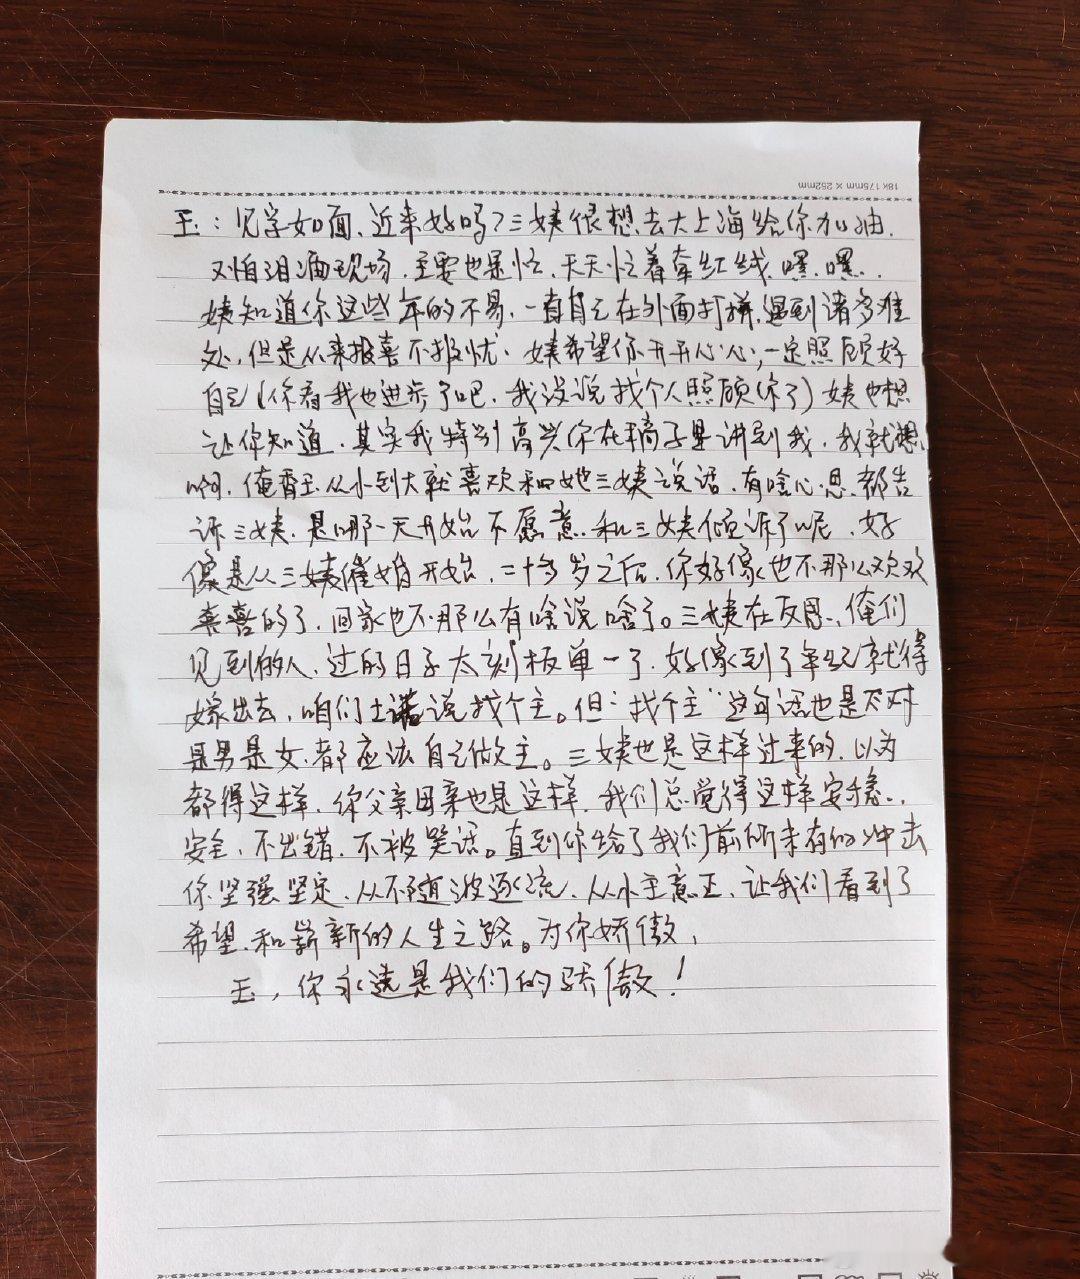 18K 175mm X 252mm
玉：见字如面，近来好吗？三姨很想去大上海给你加油，
又怕泪洒现场，主要也是忙，天天忙着牵红线，嘿嘿..
姨知道你这些年的不易，一直自己在外面打拼，遇到诸多难
处，但是从来报喜不报忧，姨希望你开开心心，一定照顾好
自己（你看我也进步了吧，我没说找个人照顾你了）姨也想
让你知道，其实我特别高兴你在稿子里讲到我，我就想
啊，俺香玉从小到大就喜欢和她三姨说话，有啥心思都告
诉三姨，是哪一天开始不愿意和三姨倾诉了呢，好
像是从三姨催婚开始，二十多岁之后，你好像也不那么欢欢
喜喜的了，回家也不那么有啥说啥了。三姨在反思，俺们
见到的人，过的日子太刻板单一了，好像到了年纪就得
嫁出去，咱们土话说找个主。但"找个主"这句话也是不对
是男是女都应该自己做主。三姨也是这样过来的，以为
都得这样，你父亲母亲也是这样，我们总觉得这样安稳..
安全，不出错，不被笑话。直到你给了我们前所未有的冲击
你坚强坚定，从不随波逐流，从小主意正，让我们看到了
希望，和崭新的人生之路。为你娇傲，
玉，你永远是我们的骄傲！